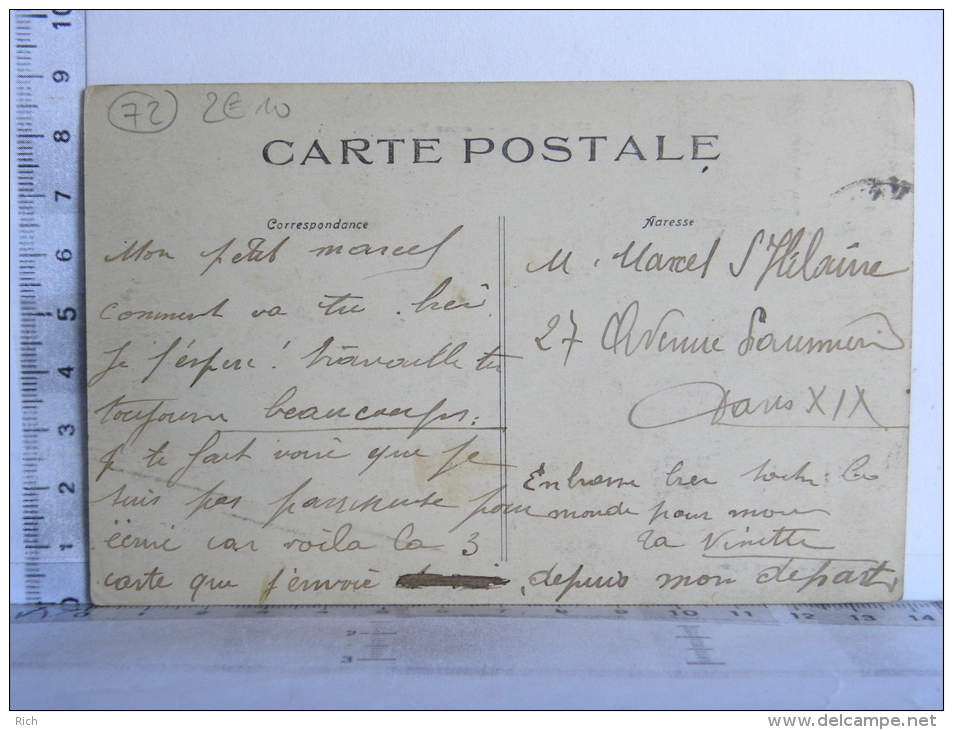 72 2E10
CARTE POSTALE
Correspondance
Mon petit marcel
comment va tu, bien
Je l'espère! travaille tu
toujours beaucoups.
je te fait voire que je
suis pas parrsseuse pour
écrire car voila la 3
carte que j'envoie depuis mon depart
Adresse
M. Marcel St Hélaine
27 Avenue Saumur
Paris XIX
Enbrasse bien toute le
monde pour mon
ta Vinette
10
9
8
7
6
5
4
3
2
1
0
2
3
10
11
12
13
14
Rich
www.delcampe.net